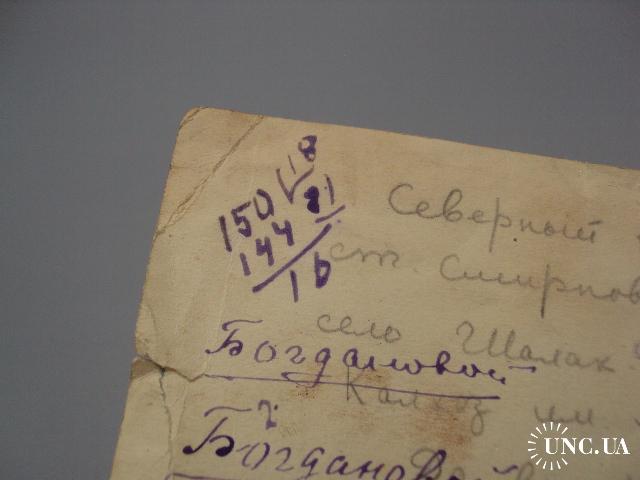 150 18
144 81
16
Северный
ст. Смирнов
село Шалак
Богдановой
Калхоз им
Богдановой
UNC.UA